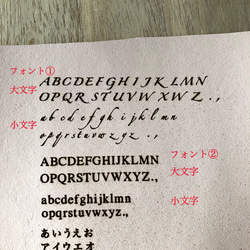 フォント①
大文字
ABCDEFGHIJKLMN
OPQRSTUVWXYZ.,
小文字
abcdefghijklmn
opqrstuvwxyz.,
フォント②
大文字
ABCDEFGHIJKLMN
OPQRSTUVWXYZ.,
小文字
abcdefghijklmn
opqrstuvwxyz.,
あいうえお
アイウエオ